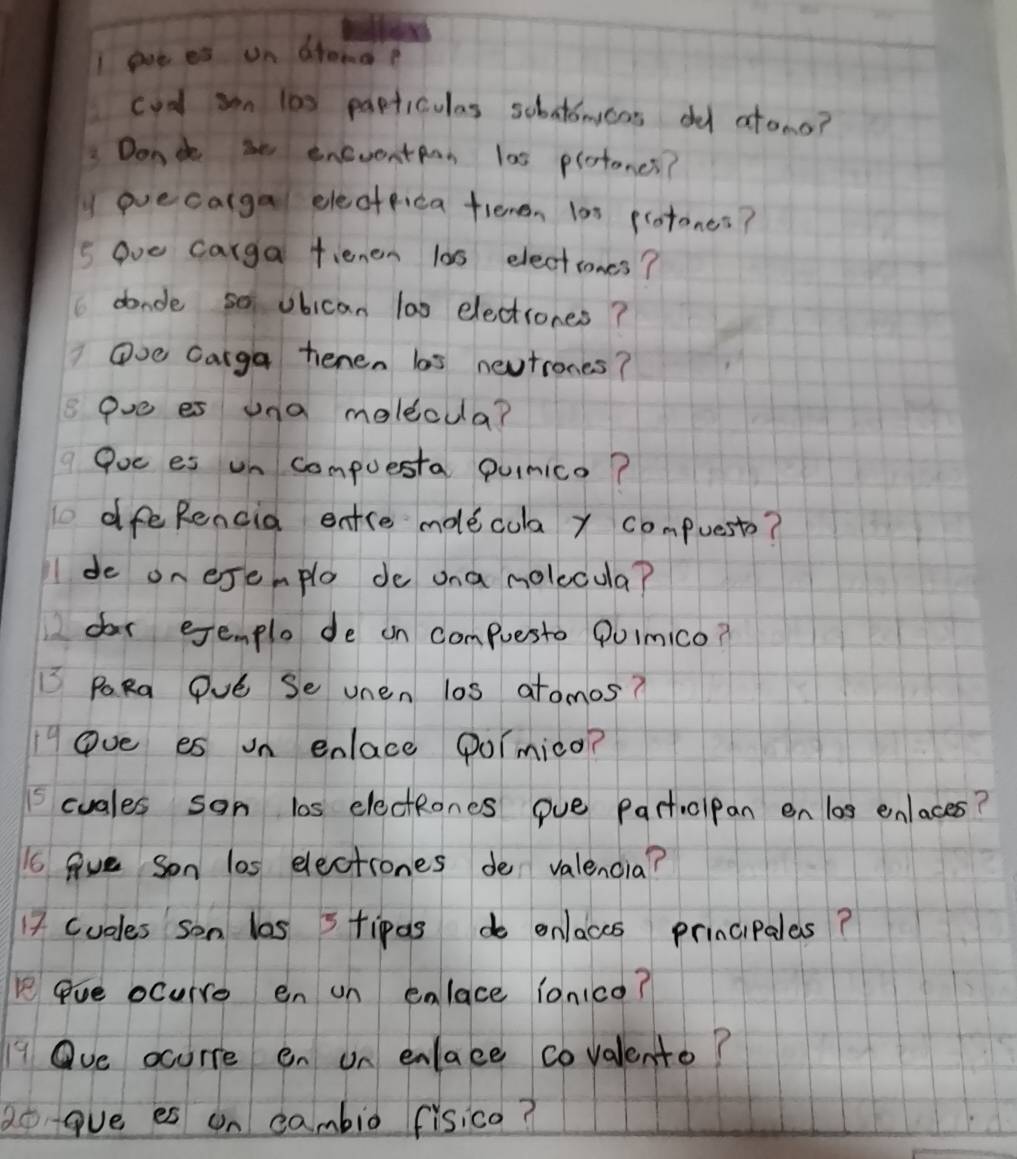 1 Que es un átomo?
2 cual son las particulas subatómicas del atomo?
3 Donde se encuentran los protones?
4 Que carga electrica tienen los protones?
5 Que carga tienen los electrones?
6 donde se ubican los electrones?
7 Que carga tienen los neutrones?
8 Que es una molécula?
9 Que es un compuesta Quimico?
10 difeRencia entre molécula y compuesto?
11 de un ejemplo de una molecula?
12 dar ejemplo de un compuesto Quimico?
13 PaRa Qué Se unen los atomos?
14 Que es un enlace Químico?
15 cuales son los electRones Que participan en los enlaces?
16 Que son los electrones de valencia?
17 Cuales son las 3 tipos de enlaces principales?
18 Que ocurre en un enlace ionico?
19 Que ocurre en un enlace covalente?
20 -que es un cambio fisico?